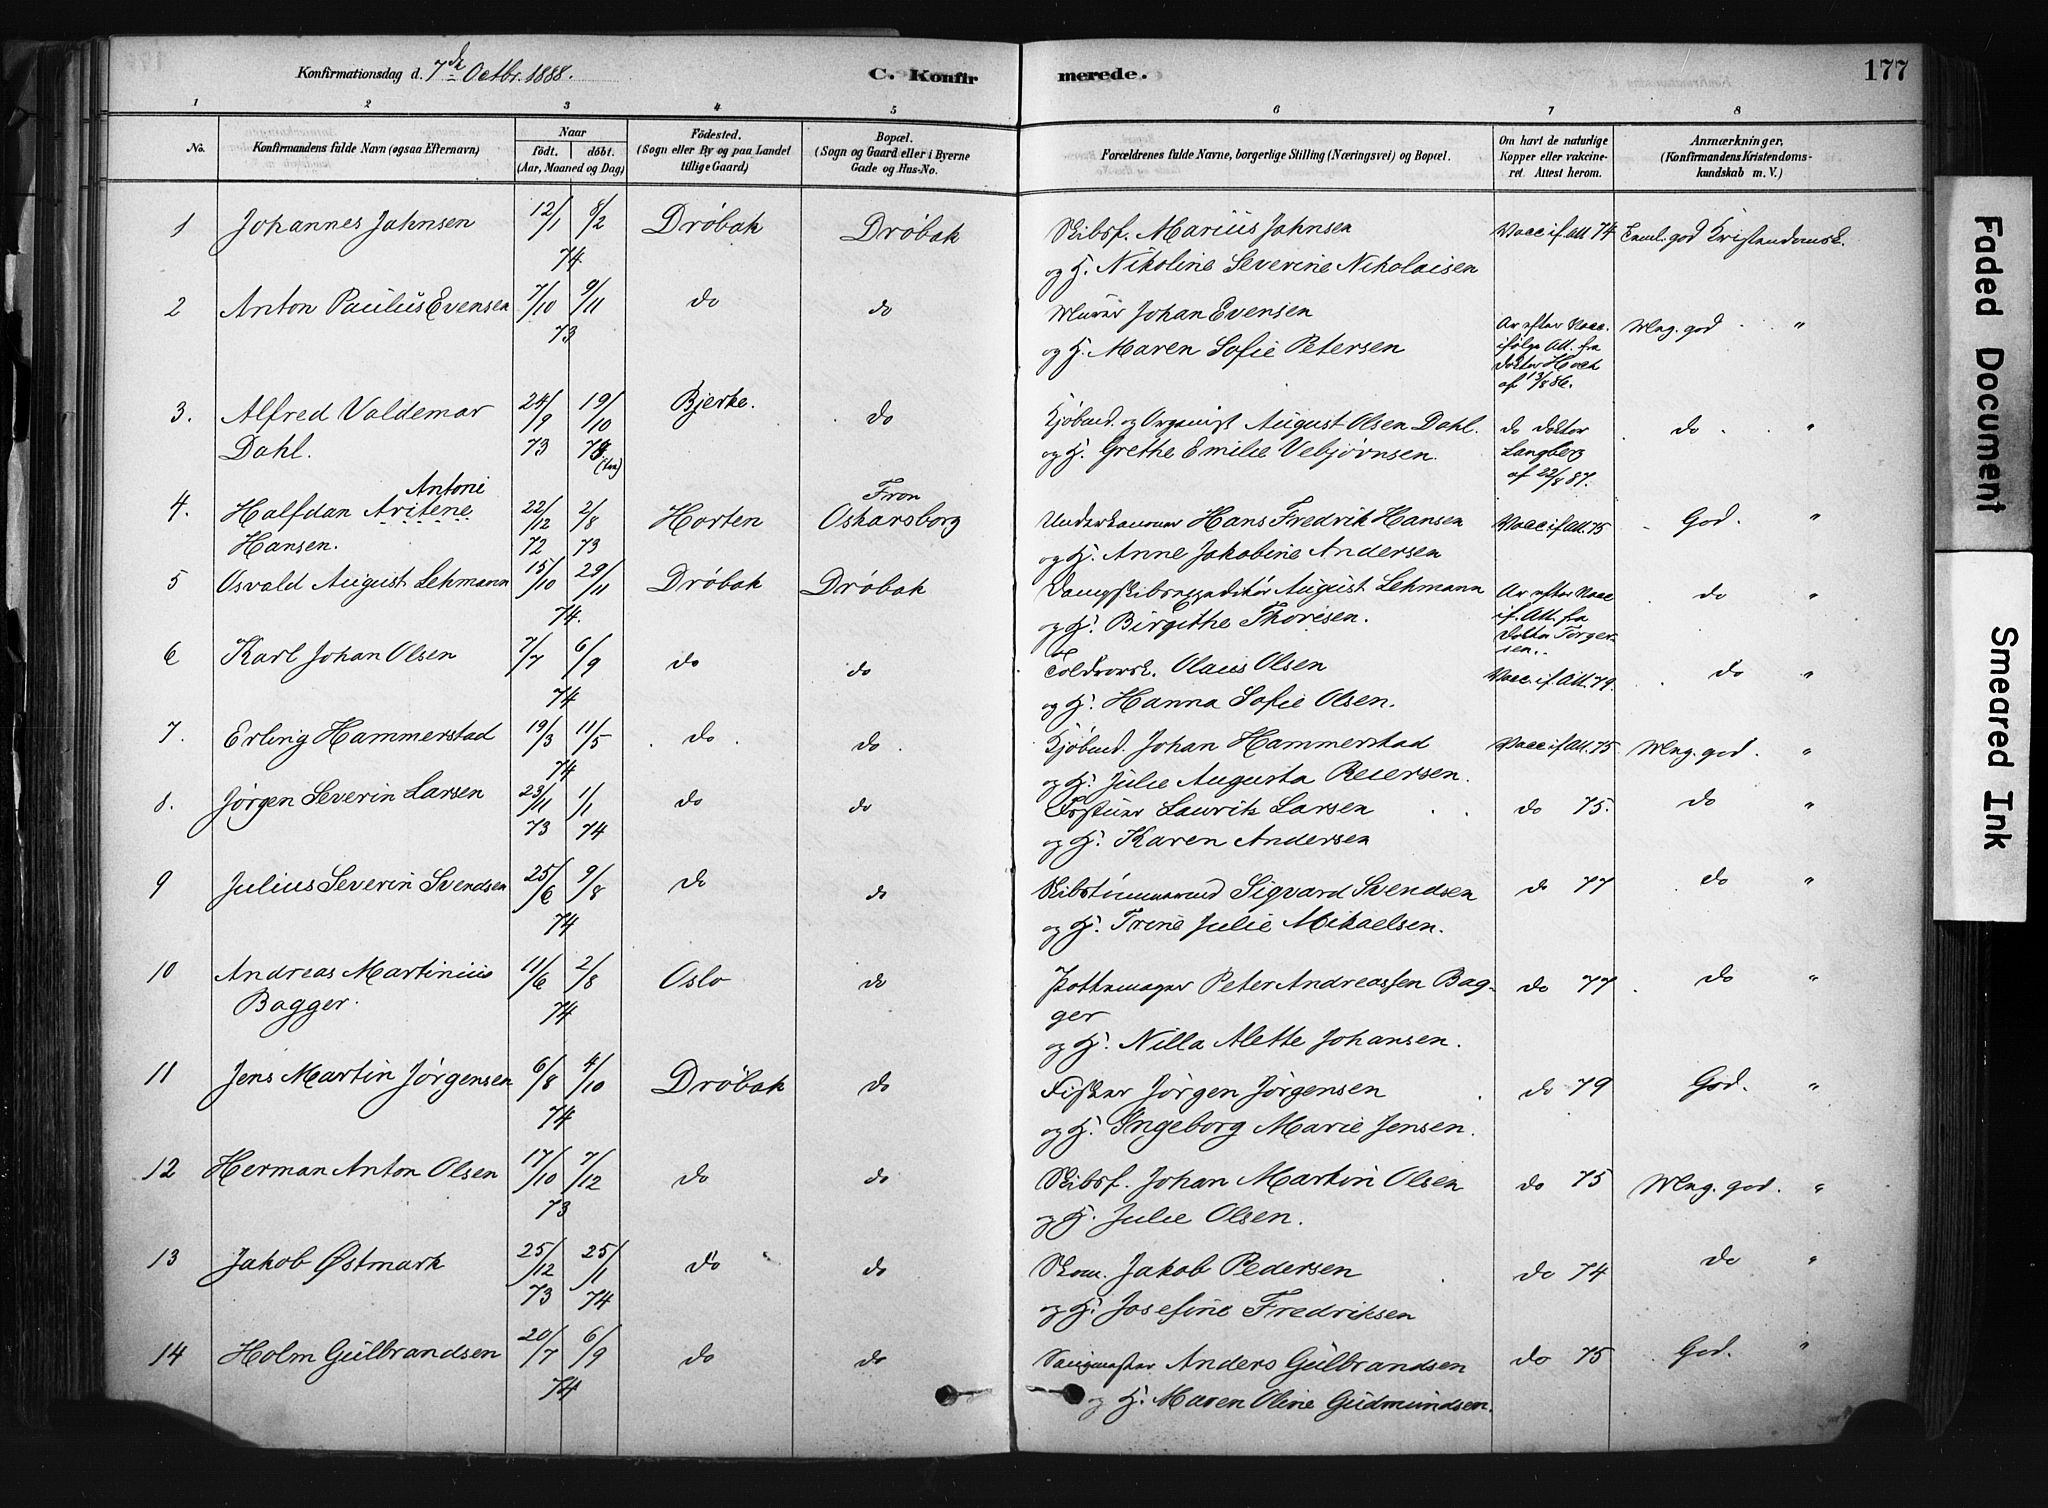 Konfirmationsdag d. 7de Octbr. 1888.
C. Konfirmerede.
177
1 2 3 4 5 6 7 8
No.
Konfirmandens fulde Navn (ogsaa Efternavn)
Naar
födt. döbt.
(Aar, Maaned og Dag)
Födested.
(Sogn eller By og paa Landet
tillige Gaard)
Bopæl.
(Sogn og Gaard eller i Byerne
Gade og Hus-No.
Forældrenes fulde Navne, borgerlige Stilling (Næringsvei) og Bopæl.
Om havt de naturlige
Kopper eller vakcine-
ret. Attest herom.
Anmærkninger,
(Konfirmandens Kristendoms-
kundskab m. V.)
1 Johannes Jahnsen 12/1 8/2 Drøbak Drøbak Skibsf. Marius Jahnsen Vacc if att 74 god Kristendomsk.
74 og H. Nikoline Severine Nikolaisen
2 Anton Paulus Evensen 7/10 9/11 do do Murer Johan Evensen Ar efter Vacc. Mg. god "
73 og H. Maren Sofie Petersen ifølge Att. fra
Doktor
af 13/8 86.
3. Alfred Valdemar 24/9 19/10 Bjerke. do Kjøbmd. og Organist August Olsen Dahl. do doktor do "
Dahl. 73 73 og H. Grethe Emilie Vebjørnsen. Langberg
af 22/8 87.
Antoni Fron
4. Halfdan Aritene 22/12 2/8 Horten Oskarsborg Underkanoner Hans Fredrik Hansen Vacc if Att. 75 God. "
Hansen. 72 73 og H. Anne Jakobine Andersen
5 Osvald August Lehmann 15/10 29/11 Drøbak Drøbak Dampskibsexpeditør August Lehmann Ar efter Vacc do "
74. og H. Birgithe Thoresen. if. Att. fra
Doktor Torger-
sen.
6 Karl Johan Olsen 7/7 6/9 do do Toldrorsk. Olaus Olsen Vacc. if. Att. 79. do "
74 og H. Hanna Sofie Olsen.
7. Erling Hammerstad 19/3 11/5 do do Kjøbmd. Johan Hammerstad Vacc if Att. 75 Mg. god. "
74 og H. Julie Augusta Reiersen.
8. Jørgen Severin Larsen 23/11 1/1 do do Lauritz Larsen do 75. do "
73 74 og H. Karen Andersen
9 Julius Severin Svendsen 25/6 9/8 do do Skibstømmermd Sigvard Svendsen do 77 do "
74 og H. Trine Julie Mikaelsen.
10 Andreas Martinius 11/6 2/8 Oslo do Pottemager Peter Andreassen Bag- do 77 do "
Bagger. 74 ger
og H. Nilla Alette Johansen.
11 Jens Martin Jørgensen 6/8 4/10 Drøbak do Fisker Jørgen Jørgensen do 79 God. "
74 og H. Ingeborg Marie Jensen.
12 Herman Anton Olsen 17/10 7/12 do do Skibsf. Johan Martin Olsen do 75 Mg. god. "
73 og H. Julie Olsen.
13 Jakob Østmark 25/12 25/1 do do Skom. Jakob Pedersen do 74 do "
73 74 og H. Josefine Fredriksen
14 Holm Gulbrandsen 20/7 6/9 do do Saugmester Anders Gulbrandsen do 75 God. "
74 og H. Maren Oline Gudmundsen.
Faded Document
Smeared Ink